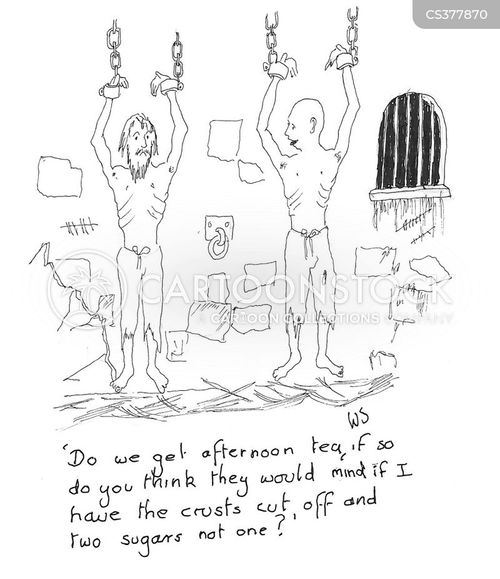 CS377870
CARTOONSTOCK
CARTOON COLLECTIONS COMPANY
WS
'Do we get afternoon tea, if so
do you think they would mind if I
have the crusts cut, off and
two sugars not one?'